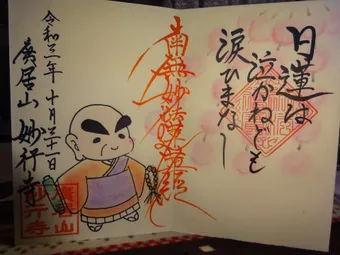 日蓮は
泣かねども
涙ひまなし
南無妙法蓮華経
令和三年 十月三十一日
廣居山 妙行寺
山
妙行寺